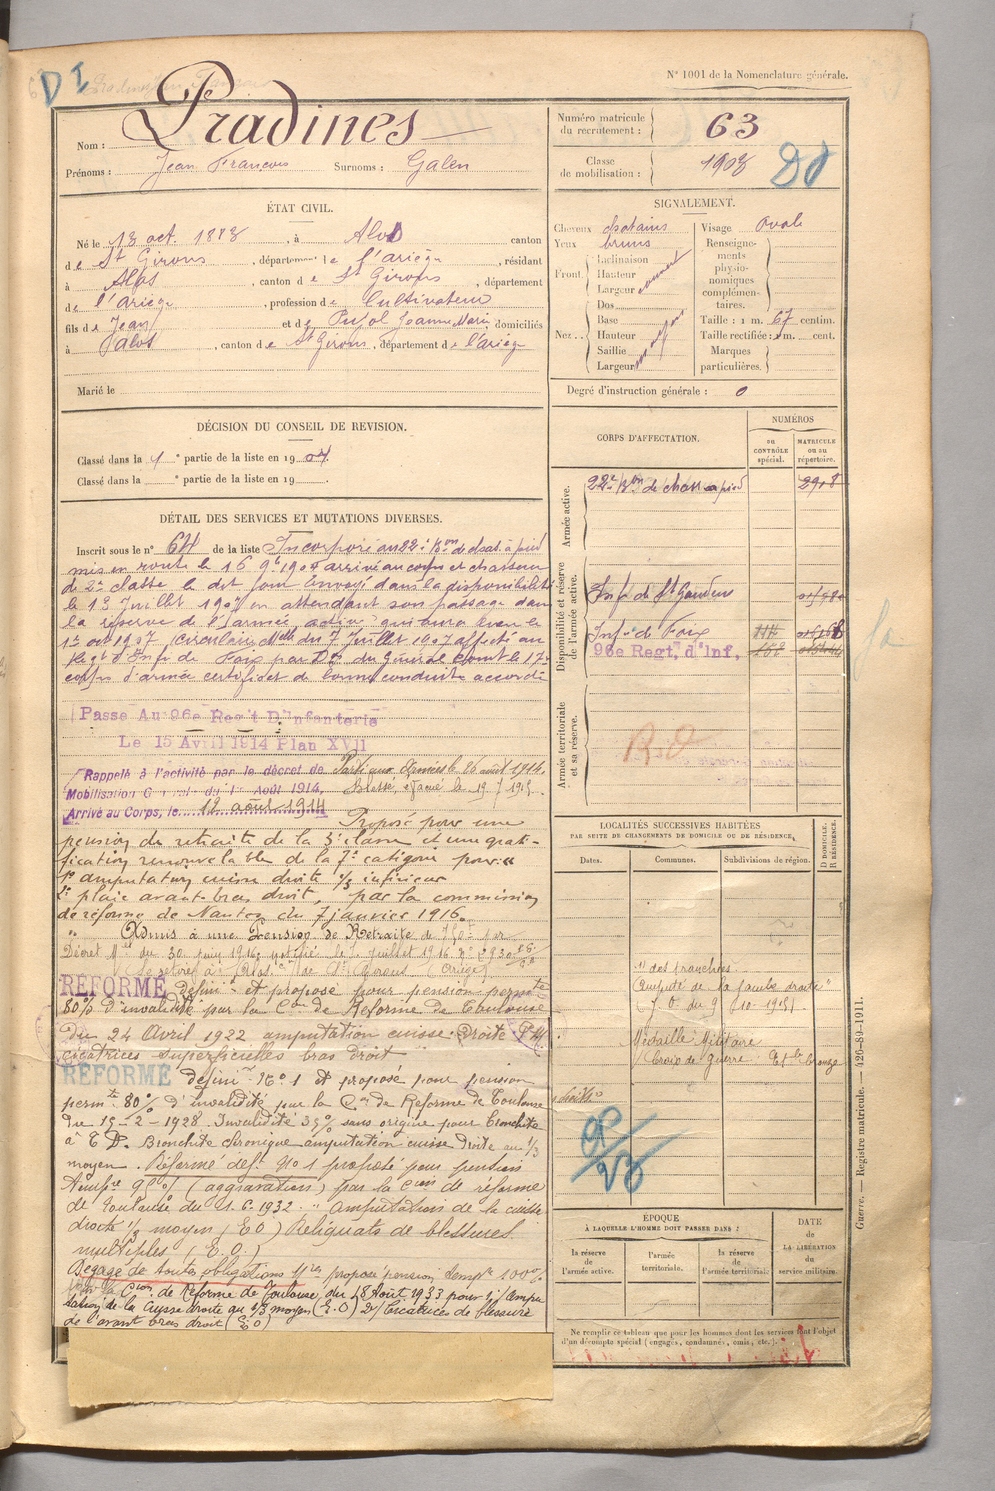 N° 1001 de la Nomenclature générale.
D I
Nom : Pradines
Prénoms : Jean François Surnoms : Galen
Numéro matricule du recrutement : 63
Classe de mobilisation : 1903
ÉTAT CIVIL.
Né le 13 oct. 1883, à Alos canton
de St Girons, département de l'ariège, résidant
à Alos, canton de St Girons, département
de l'Ariège, profession de Cultivateur
fils de Jean et de Pujol Jeanne Marie, domiciliés
à Alos, canton de St Girons, département de l'ariège
Marié le
SIGNALEMENT.
Cheveux chatains Visage Ovale
Yeux bruns
Front. Inclinaison
Hauteur
Largeur couvert
Nez.. Dos
Base
Hauteur
Saillie
Largeur moyen
Renseignements physionomiques complémentaires.
Taille : 1 m. 67 centim.
Taille rectifiée : 1 m. cent.
Marques particulières.
Degré d'instruction générale : 0
DÉCISION DU CONSEIL DE REVISION.
Classé dans la 1e partie de la liste en 1904.
Classé dans la e partie de la liste en 19 .
DÉTAIL DES SERVICES ET MUTATIONS DIVERSES.
Inscrit sous le n° 64 de la liste Incorporé au 22e Bon de chas. à pied
mis en route le 16 9bre 1904 arrivé au corps et chasseur
de 2e classe le dit jour Envoyé dans la disponibilité
le 13 Juillet 1907 en attendant son passage dans
la réserve de l'armée active qui aura lieu le
1er oct 1907 (Circulaire Mlle du 7 Juillet 1907 affecté au
Régt d'Infie de Foix par Don du Général Comt le 17e
corps d'armée certificat de bonne conduite accordé
Passé Au 96e Reg't D'Infanterie
Le 15 Avril 1914 Plan XVII
Rappelé à l'activité par le décret de
Mobilisation Générale du 1er Août 1914,
Arrivé au Corps, le 12 août 1914
Parti aux Armées le 26 août 1914.
Blessé, évacué le 19.7.1915.
Proposé pour une
pension de retraite de la 3e classe et une grati-
fication renouvelable de la 7e catégorie pour «
1° amputation cuisse droite 1/3 inférieur
2° plaie avant-bras droit, par la commission
de réforme de Nantes du 7 janvier 1916.
Admis à une Pension de Retraite de 750f par
Décret Mel du 30 juin 1916, notifié le 2 juillet 1916
Se retire à Alos (Con de St Girons) (Ariège)
RÉFORMÉ définit et proposé pour pension permte
80% d'invalidité par la Con de Réforme de Toulouse
du 24 Avril 1922 amputation cuisse Droite
cicatrices superficielles bras droit
RÉFORMÉ définit N° 1 et proposé pour pension
permte 80% d'invalidité par la Con de Réforme de Toulouse
du 15-2-1928. Invalidité 35% sans origine pour Bronchite
à E D. Bronchite chronique amputation cuisse Droite au 1/3
moyen. Réformé déf. N° 1 proposé pour pension
tempre 90% (aggravation) par la Con de réforme
de Toulouse du 1.6.1932. " Amputation de la cuisse
droite 1/3 moyen (E O) Reliquats de blessures
multiples (E. O.)
Dégagé de toutes obligations Mres proposé pension temp're 100%
par la Con de Réforme de Toulouse du 18 Août 1933 pour 1/ Ampu
tation de la Cuisse droite au 1/3 moyen (E.O) 2/ Cicatrices de blessure
de l'avant bras droit (E O)
CORPS D'AFFECTATION.
NUMÉROS
DU CONTRÔLE spécial.
MATRICULE ou au répertoire.
Armée active.
22e Bon de chass à pied 2908
Disponibilité et réserve de l'armée active.
Infie St Gaudens
Infie de Foix
96e Regt. d'Inf.
Armée territoriale et sa réserve.
R.D
LOCALITÉS SUCCESSIVES HABITÉES
PAR SUITE DE CHANGEMENTS DE DOMICILE OU DE RÉSIDENCE.
Dates. Communes. Subdivisions de région.
D DOMICILE. R RÉSIDENCE.
" des tranchées
amputé de la jambe droite "
Médaille Militaire
Croix de Guerre Et le bronze
ÉPOQUE
À LAQUELLE L'HOMME DOIT PASSER DANS :
la réserve de l'armée active.
l'armée territoriale.
la réserve de l'armée territoriale
DATE DE LA LIBÉRATION du service militaire.
Ne remplir ce tableau que pour les hommes dont les services font l'objet
d'un décompte spécial (engagés, condamnés, omis, etc.).
Guerre. — Registre matricule. — 426-89-1911.